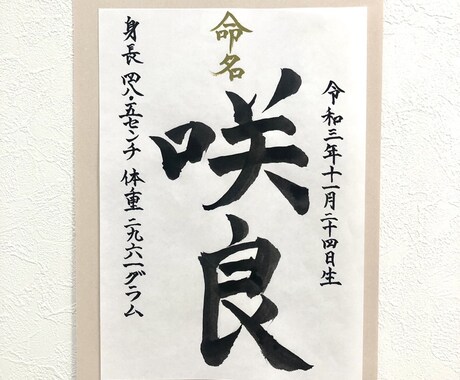 命名
令和三年十一月二十四日生
咲良
身長 四八・五センチ 体重 二九六一グラム